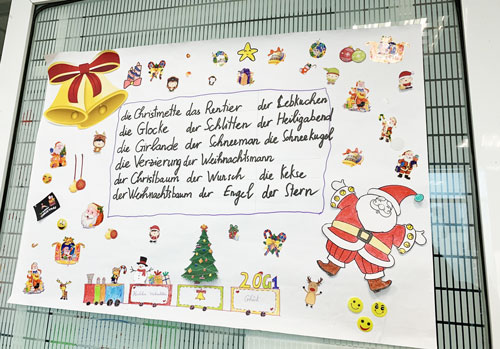 die Christmette das Rentier der Lebkuchen
die Glocke der Schlitten der Heiligabend
die Girlande der Schneeman die Schneekugel
die Verzierung der Weihnachtsmann
der Christbaum der Wunsch die Kekse
der Weihnachtsbaum der Engel der Stern
20G1